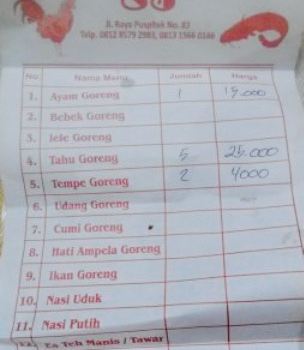 Jl. Raya Puspitek No. 83
Telp. 0852 8579 2983, 0813 1566 0146
No. Nama Menu Jumlah Harga
1. Ayam Goreng 1 15.000
2. Bebek Goreng
3. lele Goreng
4. Tahu Goreng 5 25.000
5. Tempe Goreng 2 4000
6. Udang Goreng
7. Cumi Goreng
8. Hati Ampela Goreng
9. Ikan Goreng
10. Nasi Uduk
11. Nasi Putih
12. Es Teh Manis / Tawar